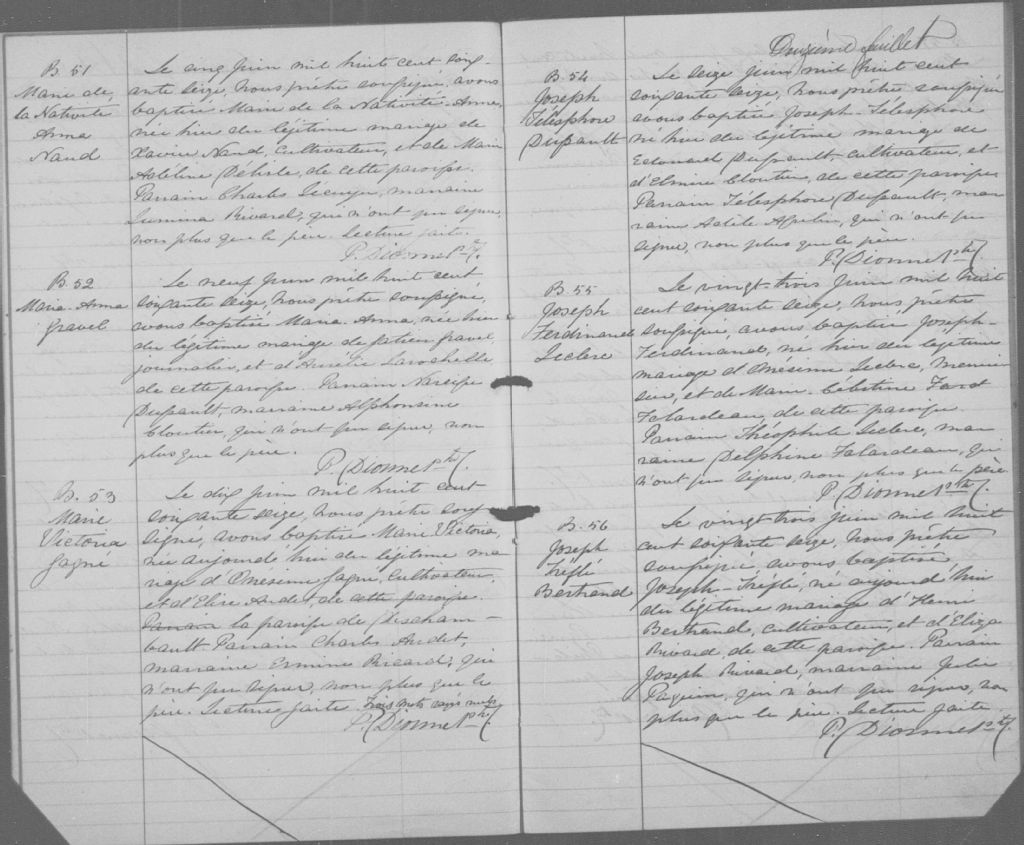 B. 51
Marie de
la Nativité
Anna
Naud
Le cinq juin mil huite cent soix-
ante seize, nous prêtre soussigné, avons
baptisé Marie de la Nativité Anna,
née hier du légitime mariage de
Xavier Naud, cultivateur, et de Marie
Adeline Délisle, de cette paroisse.
Parrain Charles Lecuyer, marraine
Lumina Rivard, qui n'ont pu signer,
non plus que le père. Lecture faite.
P. Dionne Ptre.
B. 52
Marie. Anna
Gravel
Le neuf juin mil huit cent
soixante seize, nous prêtre soussigné,
avons baptisé Marie. Anna, née hier
du légitime mariage de Gravel,
journalier, et d'Aurélie Larochelle
de cette paroisse. Parrain Narcisse
Dussault, marraine Alphonsine
Cloutier, qui n'ont pu signer, non
plus que le père.
P. Dionne Ptre.
B. 53
Marie
Victoria
Gagné
Le dix juin mil huit cent
soixante seize, nous prêtre sous-
signé, avons baptisé Marie Victoria,
née aujourd'hui du légitime ma-
riage d'Onésime Gagné, cultivateur,
et d'Elise Audet, de cette paroisse.
Parrain la paroisse de Descham-
bault Parrain Charles Audet,
marraine Ermine Ricard, qui
n'ont pu signer, non plus que le
père. Lecture faite. Trois mots rayés nuls
P. Dionne Ptre.
Douzième feuillet
B. 54
Joseph
Télesphore
Dussault
Le seize juin mil huit cent
soixante seize, nous prêtre soussigné
avons baptisé Joseph-Télesphore
né hier du légitime mariage de
Edouard Dussault, cultivateur, et
d'Elmire Cloutier, de cette paroisse
Parrain Télesphore Dussault, mar-
raine qui n'ont pu
signer, non plus que le père.
P. Dionne Ptre.
B. 55
Joseph
Ferdinand
Leclerc
Le vingt-trois juin mil huit
cent soixante seize, nous prêtre
soussigné, avons baptisé Joseph-
Ferdinand, né hier du légitime
mariage d'Onésime Leclerc, menui-
sier, et de Marie. Célestine
Falardeau, de cette paroisse.
Parrain Théophile Leclerc, mar-
raine Delphine Falardeau, qui
n'ont pu signer, non plus que le père
P. Dionne Ptre.
B. 56
Joseph
Trefflé
Bertrand
Le vingt-trois juin mil huit
cent soixante seize, nous prêtre
soussigné, avons baptisé
Joseph-Trefflé, né aujourd'hui
du légitime mariage d'Henri
Bertrand, cultivateur, et d'Eliza
Rivard, de cette paroisse. Parrain
Joseph Rivard, marraine Julie
Paquin, qui n'ont pu signer, non
plus que le père. Lecture faite.
P. Dionne Ptre.